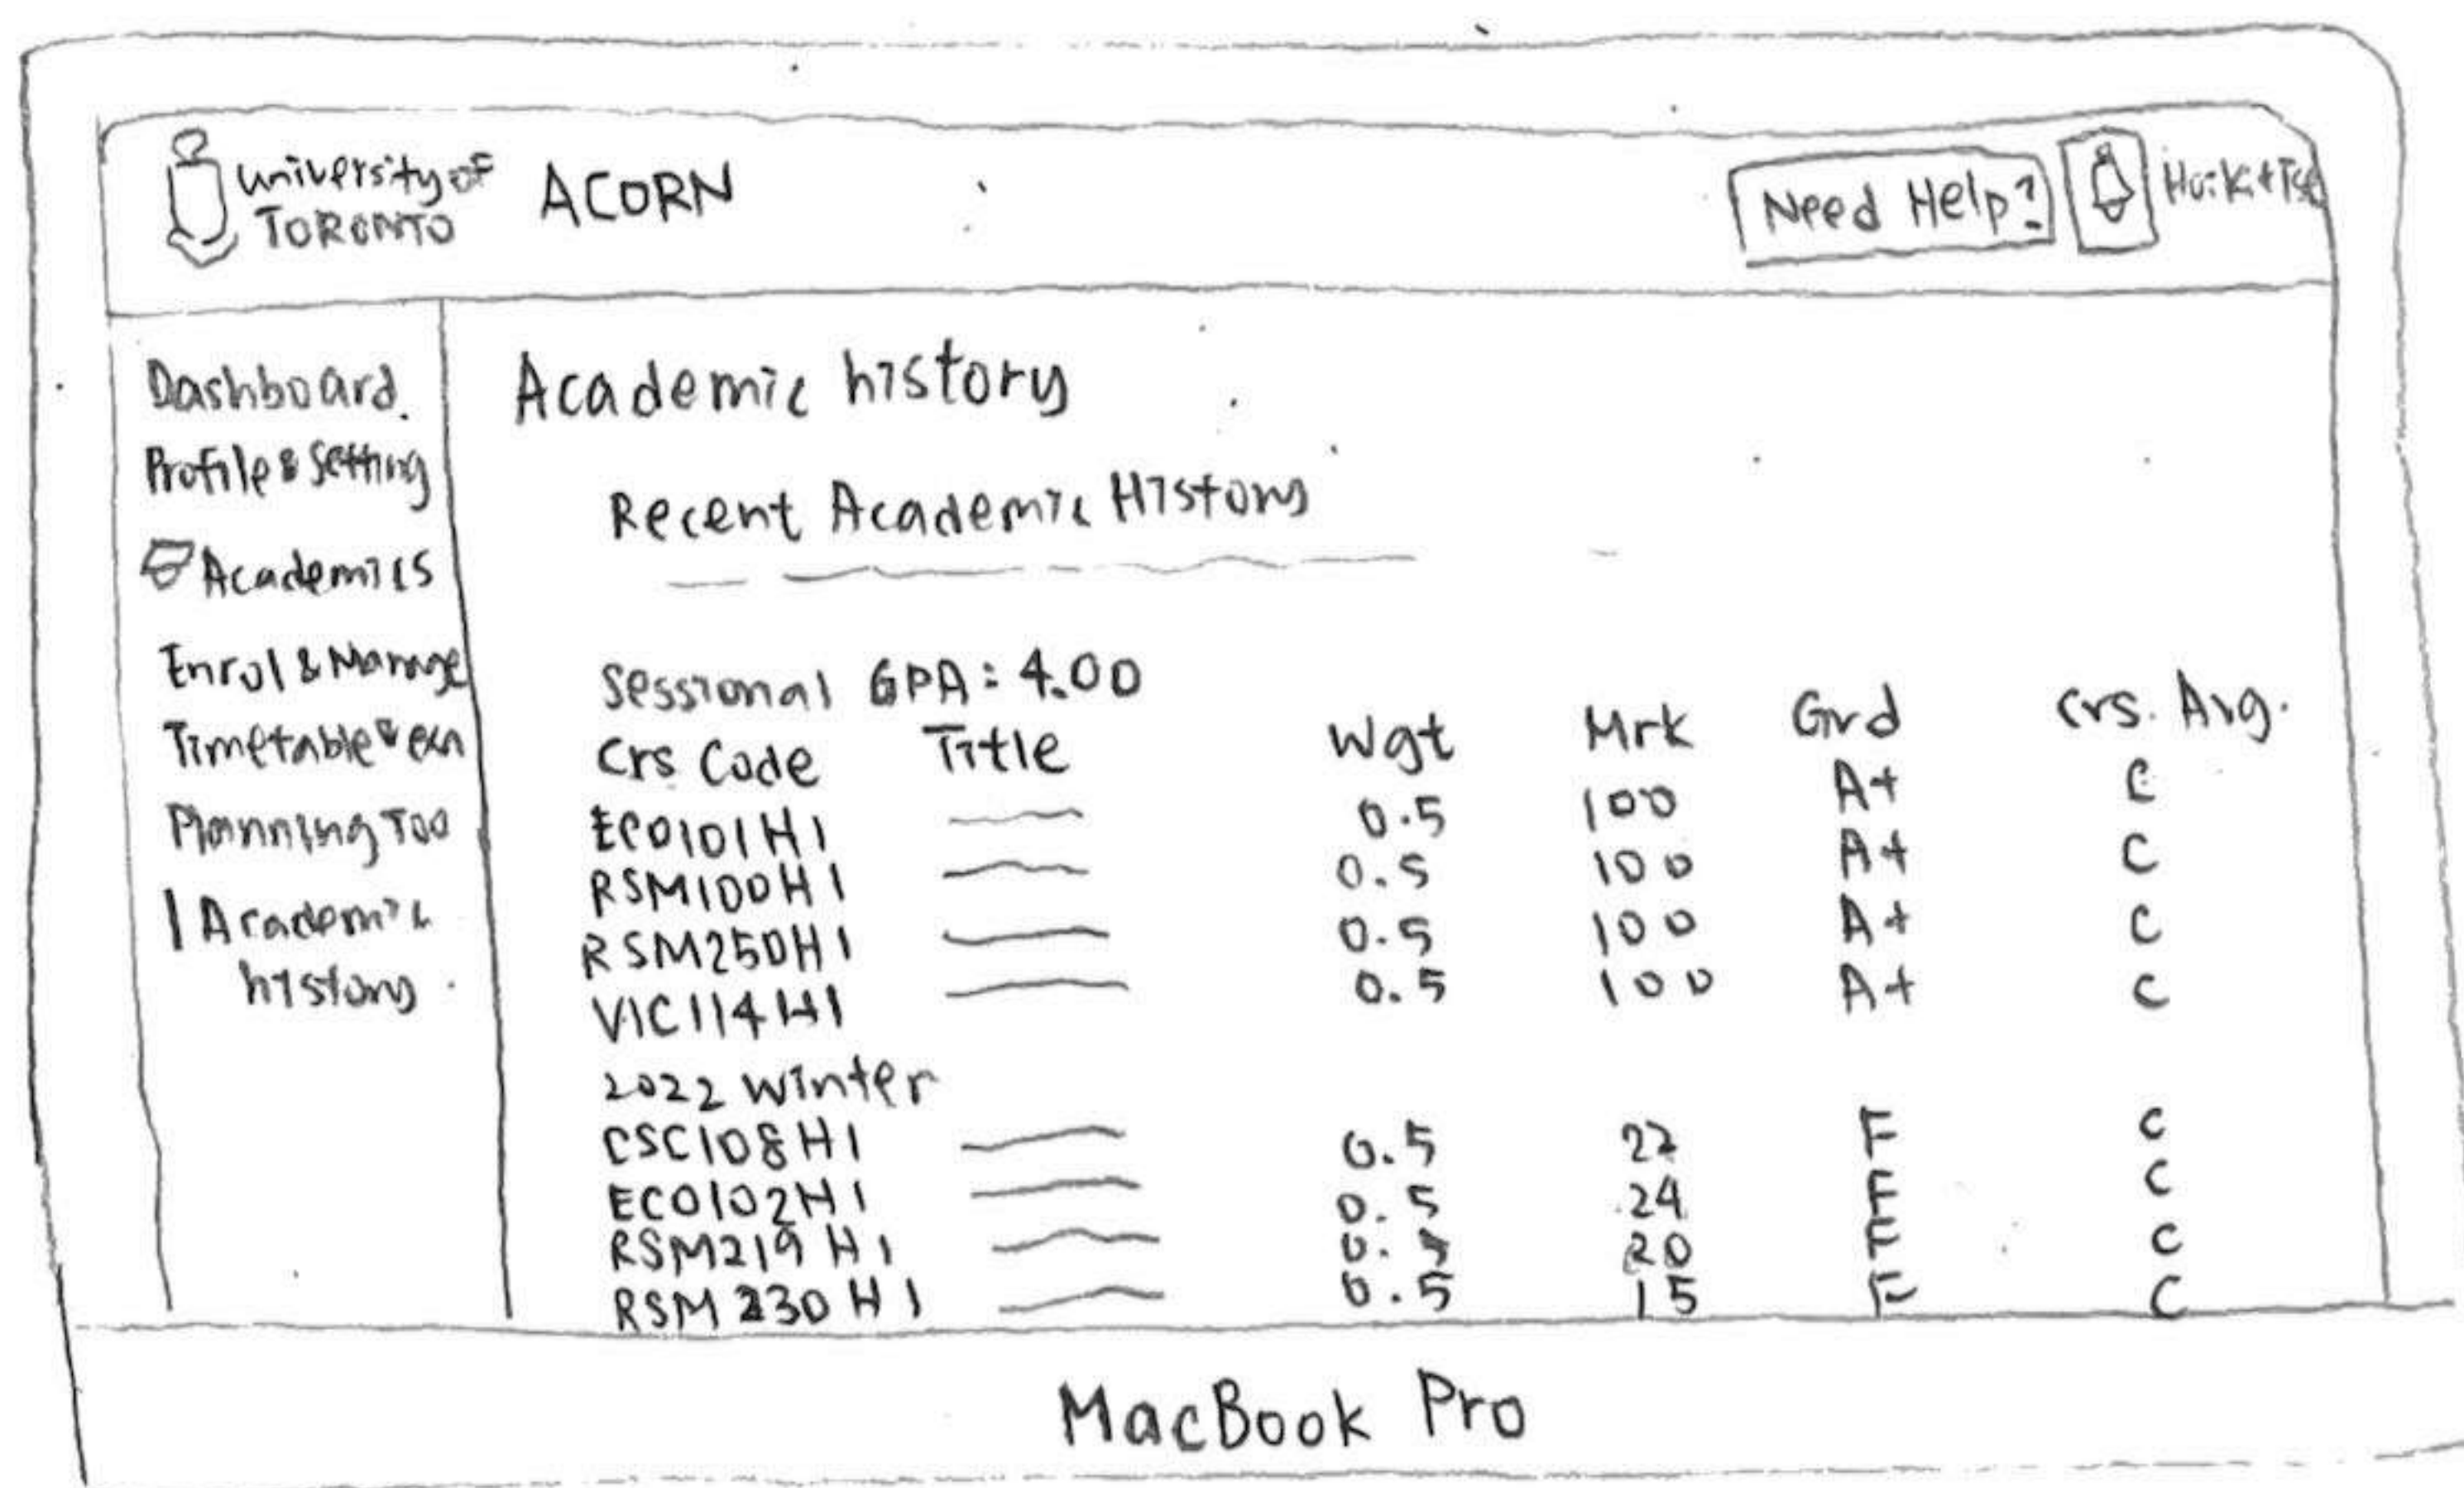 University of
TORONTO
ACORN
Need Help?
Dashboard.
Profile & Setting
Academics
Enrol & Manage
Timetable & exa
Planning Too
Academic
history.
Academic history
Recent Academic History
Sessional GPA: 4.00
Crs Code Title Wgt Mrk Grd Crs. Avg.
ECO101H1 0.5 100 A+ C
RSM100H1 0.5 100 A+ C
RSM250H1 0.5 100 A+ C
VIC114H1 0.5 100 A+ C
2022 Winter
CSC108H1 0.5 22 F C
ECO102H1 0.5 24 F C
RSM219H1 0.5 20 F C
RSM230H1 0.5 15 F C
MacBook Pro